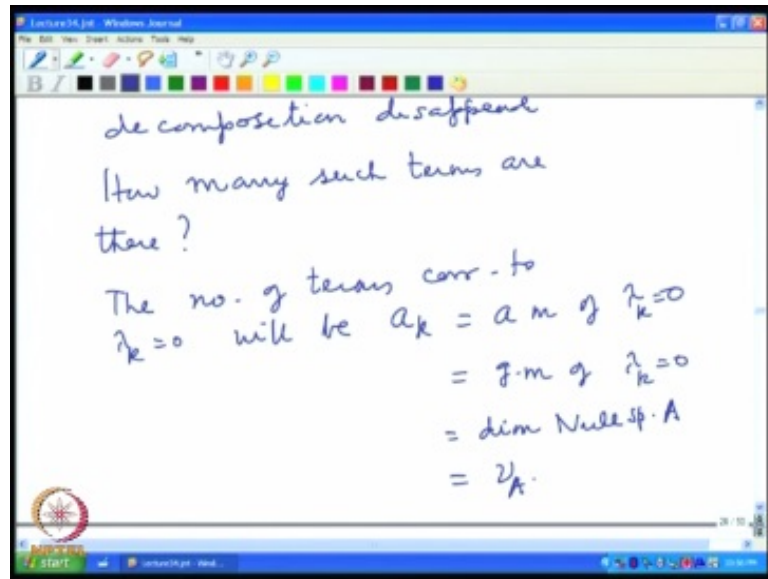 Lecture34.jnt - Windows Journal
File Edit View Insert Actions Tools Help
B I
decomposition disappear
How many such terms are
there ?
The no. of terms corr. to
λk = 0 will be ak = a m of λk = 0
= g.m of λk = 0
= dim Null sp. A
= νA.
28 / 50
NPTEL
start Lecture34.jnt - Wind...